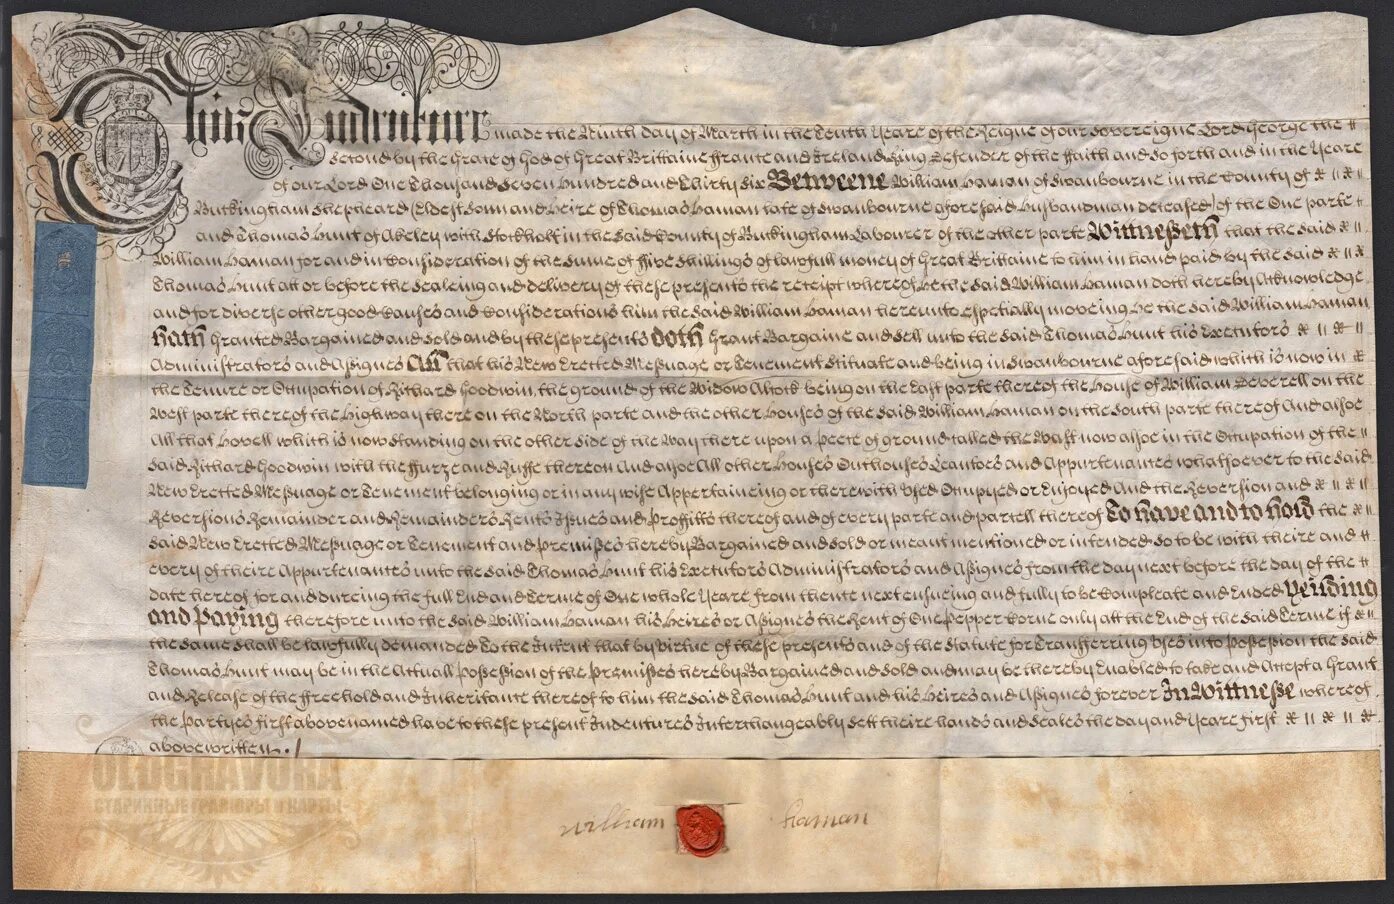 This Indenture made the Ninth day of March in the Tenth Yeare of the Reigne of our Sovereigne Lord George the
Second by the Grace of God of Great Brittaine ffrance and Ireland King Defender of the ffaith and so forth and in the Yeare
of our Lord One Thousand Seven hundred and Thirty Six Betweene William Haman of Swanbourne in the County of
Buckingham Shepheard (Eldest Sonn and Heire of Thomas Haman late of Swanbourne aforesaid Husbandman deceased) of the One parte
and Thomas Hunt of Akeley with Stockholt in the Said County of Buckingham Labourer of the other parte Wittnesseth that the said
William Haman for and in Consideration of the Sume of ffive Shillings of lawfull money of Great Brittaine to him in hand paid by the Said
Thomas Hunt att or before the Sealeing and delivery of these presents the receipt whereof he the Said William Haman doth hereby Acknowledge
and for diverse other good Causes and Considerations him the Said William Haman hereunto especially moveing he the Said William Haman
hath Granted Bargained and Sold and by these presents doth Grant Bargaine and Sell unto the Said Thomas Hunt his Executors
Administrators and Assignes All that his New Erected Messuage or Tenement Scituate and being in Swanbourne aforesaid which is now in
the Tenure or Occupation of Richard Goodwin the ground of the Widow being on the East parte thereof the House of William Deverell on the
West parte thereof the Highway there on the North parte and the other Houses of the Said William Haman on the South parte thereof And alsoe
All that Hovell which is now Standing on the other side of the Way there upon a peece of ground called the Wast now alsoe in the Occupation of the
Said Richard Goodwin with the ffurze and thereon And alsoe All other Houses Outhouses Leantoes and Appurtenances whatsoever to the Said
New Erected Messuage or Tenement belonging or in any wise Appertaineing or therewith Used Occupyed or Enjoyed And the Reversion and
Reversions Remainder and Remainders Rents Issues and Proffitts thereof and of every parte and parcell thereof To have and to hold the
Said New Erected Messuage or Tenement and premisses hereby Bargained and Sold or meant mentioned or intended So to be with theire and
every of theire Appurtenances unto the Said Thomas Hunt his Executors Administrators and Assignes from the day next before the day of the
date hereof for and dureing the full End and Terme of One whole Yeare from thence next ensueing and fully to be Compleate and Ended Yeilding
and Paying therefore unto the Said William Haman his Heires or Assignes the Rent of One Pepper Corne only att the End of the Said Terme if
the Same shall be lawfully demanded To the Intent that by virtue of these presents and of the Statute for Transferring Uses into Possession the Said
Thomas Hunt may be in the Actuall Possession of the Premisses hereby Bargained and Sold and may be thereby Enabled to take and Accept a Grant
and Release of the freehold and Inheritance thereof to him the Said Thomas Hunt and his Heires and Assignes forever In Wittnesse whereof
the Partyes first abovenamed have to these present Indentures Interchangeably Sett theire hands and Seales the day and Yeare first
abovewritten
OLDGRAVURA
СТАРИННЫЕ ГРАВЮРЫ И КАРТЫ
William Haman